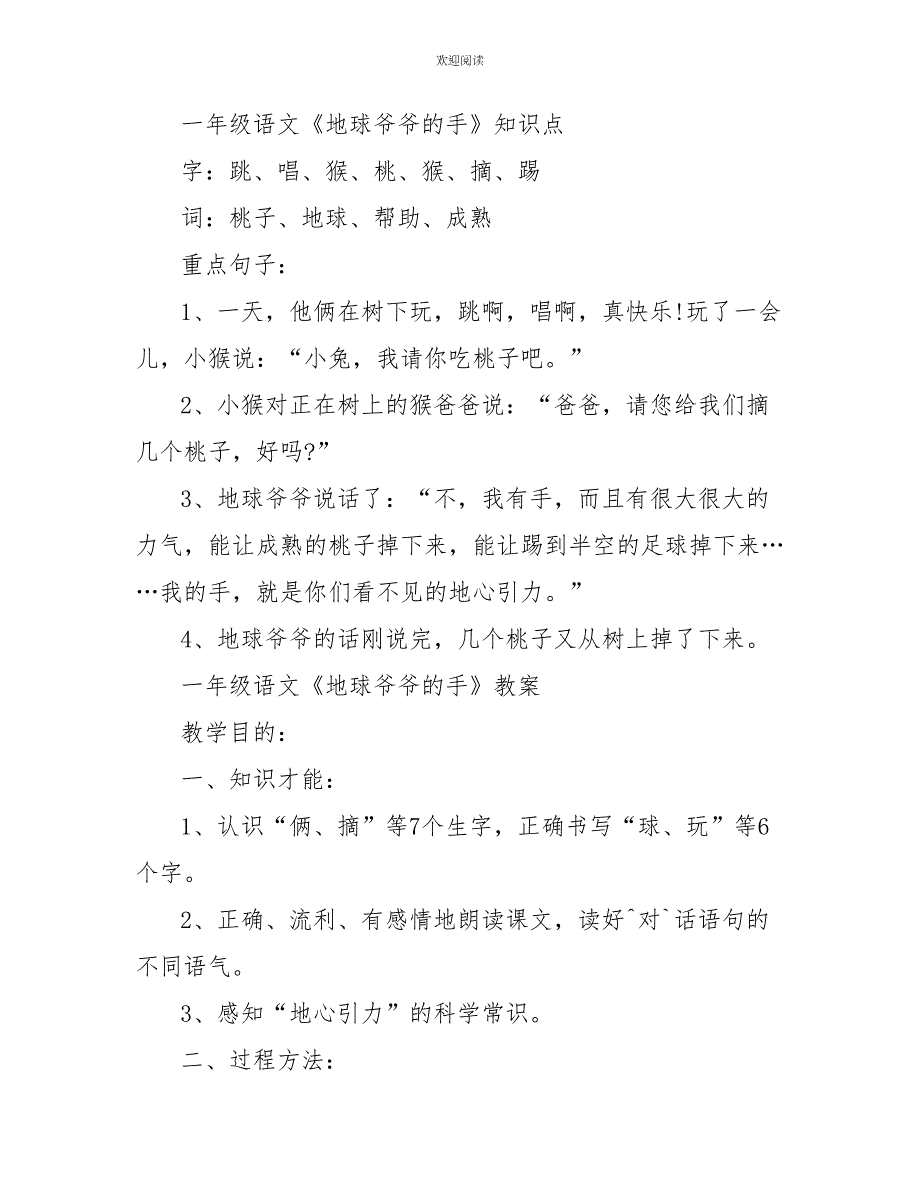 欢迎阅读
一年级语文《地球爷爷的手》知识点
字：跳、唱、猴、桃、猴、摘、踢
词：桃子、地球、帮助、成熟
重点句子：
1、一天，他俩在树下玩，跳啊，唱啊，真快乐!玩了一会
儿，小猴说：“小兔，我请你吃桃子吧。”
2、小猴对正在树上的猴爸爸说：“爸爸，请您给我们摘
几个桃子，好吗?”
3、地球爷爷说话了：“不，我有手，而且有很大很大的
力气，能让成熟的桃子掉下来，能让踢到半空的足球掉下来…
…我的手，就是你们看不见的地心引力。”
4、地球爷爷的话刚说完，几个桃子又从树上掉了下来。
一年级语文《地球爷爷的手》教案
教学目的：
一、知识才能：
1、认识“俩、摘”等7个生字，正确书写“球、玩”等6
个字。
2、正确、流利、有感情地朗读课文，读好^对`话语句的
不同语气。
3、感知“地心引力”的科学常识。
二、过程方法：